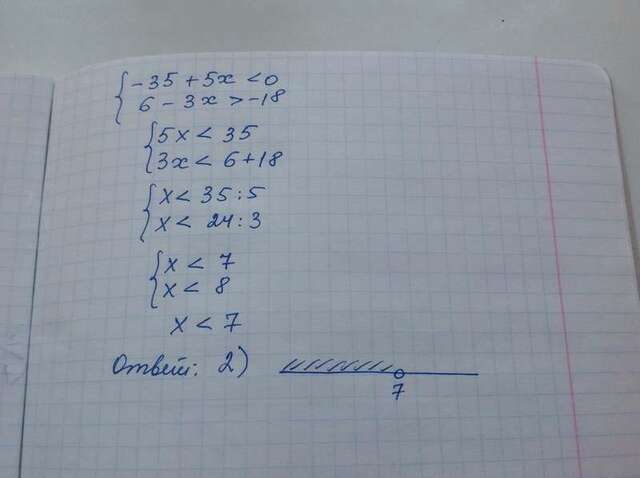 { -35 + 5x < 0
6 - 3x > -18
{ 5x < 35
3x < 6 + 18
{ x < 35 : 5
x < 24 : 3
{ x < 7
x < 8
x < 7
Ответ: 2)
7